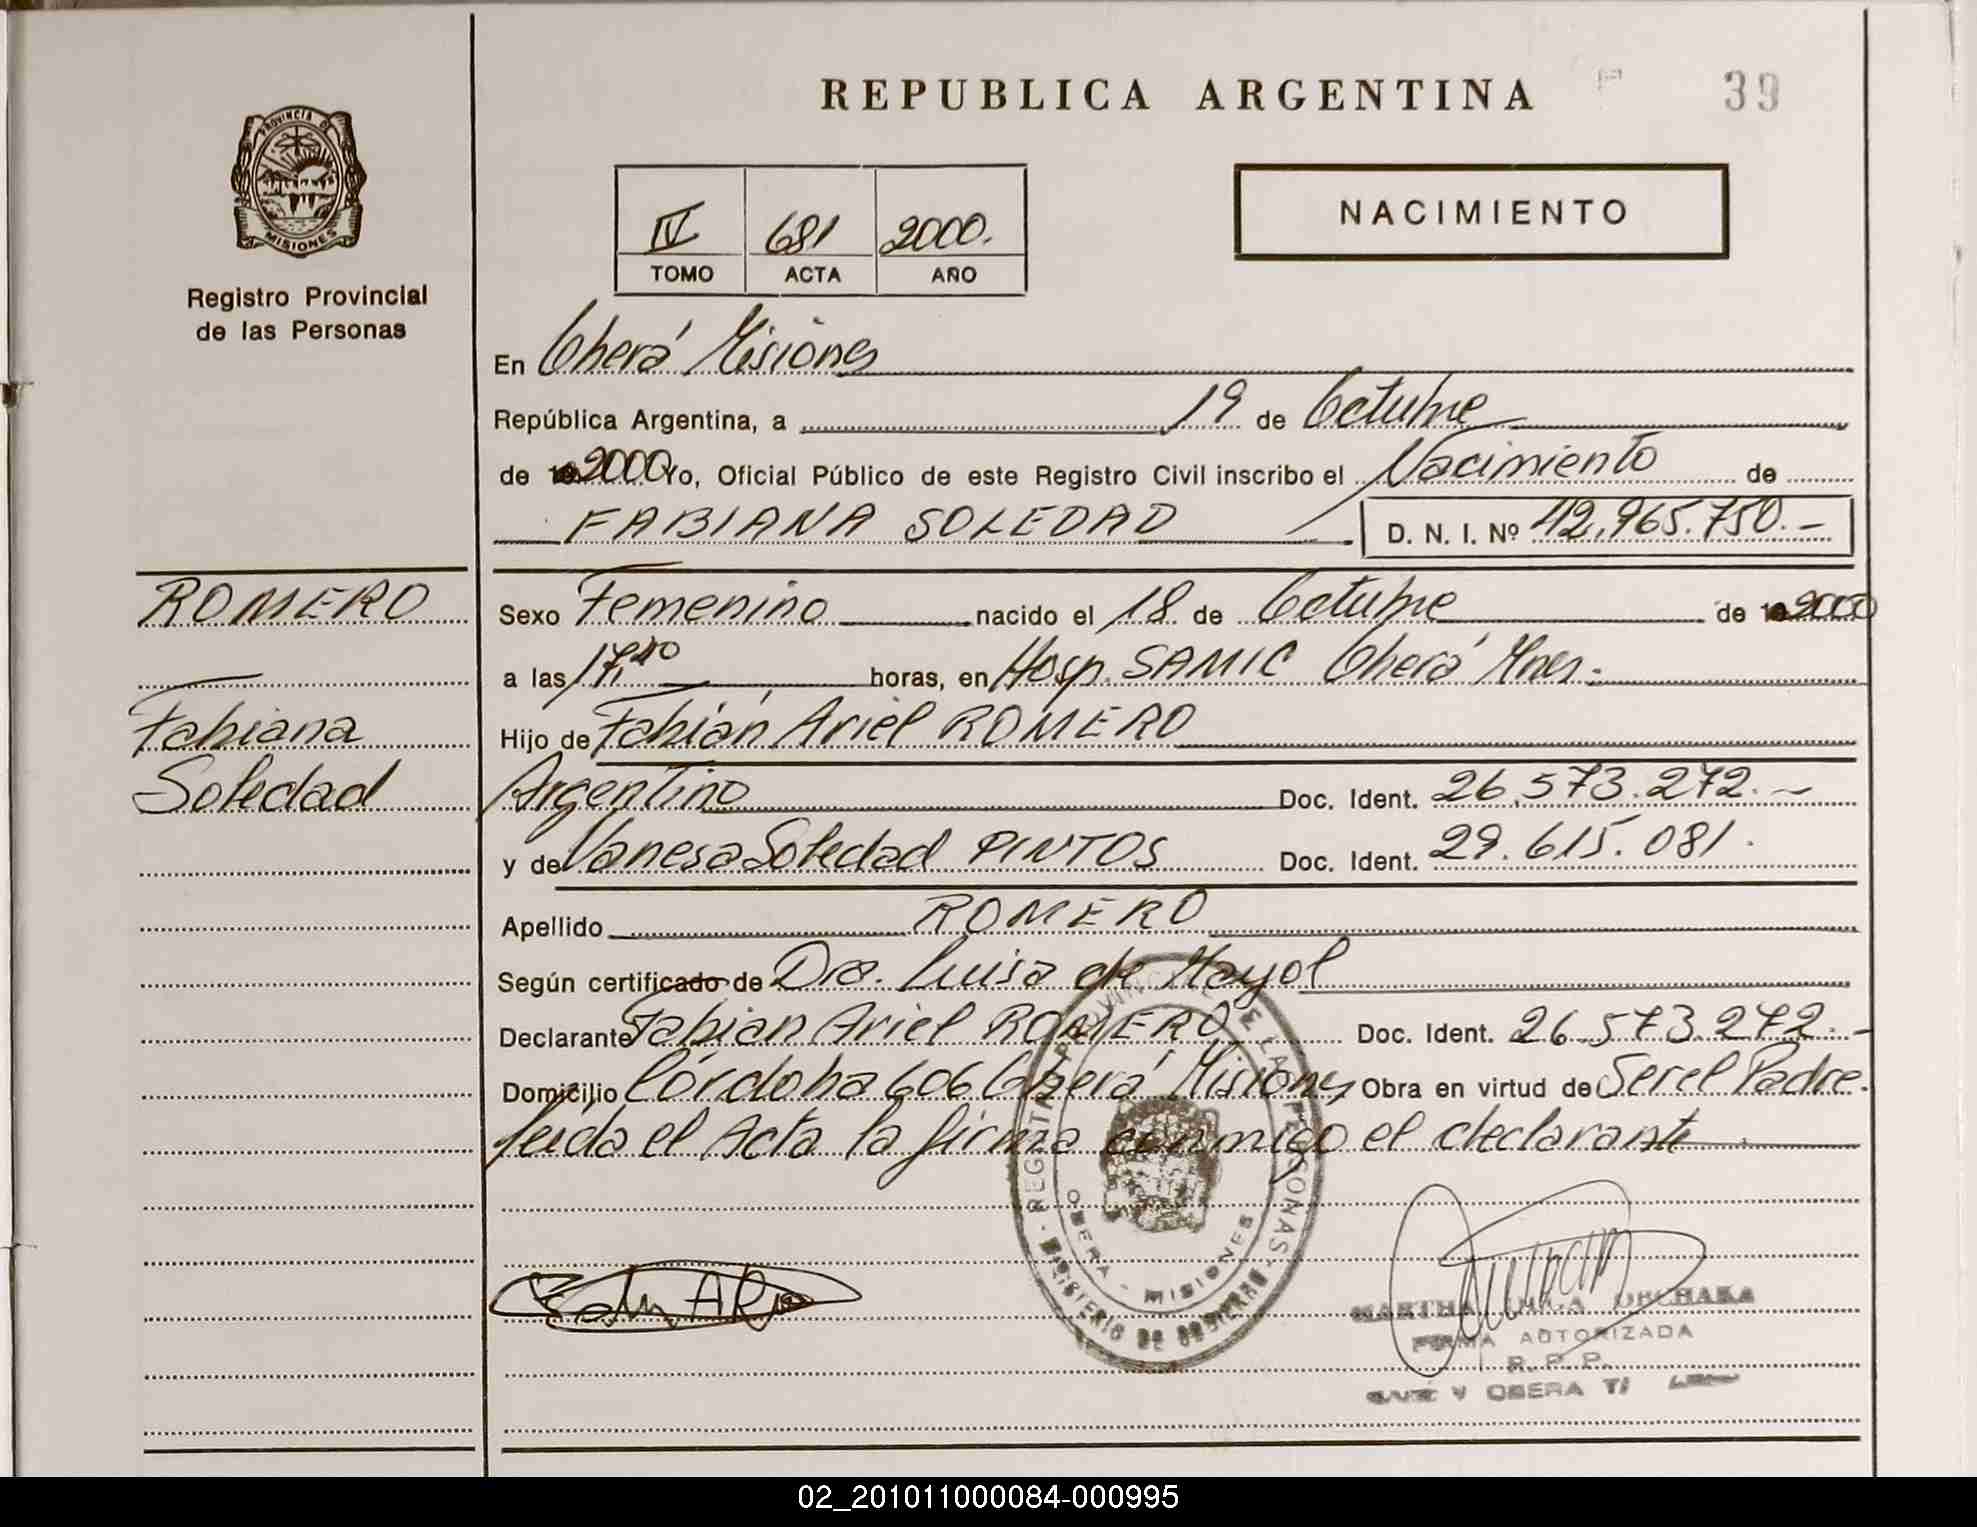 REPUBLICA ARGENTINA
39
PROVINCIA DE
MISIONES
Registro Provincial
de las Personas
IV 681 2000.
TOMO ACTA AÑO
NACIMIENTO
En Oberá Misiones
República Argentina, a 19 de Octubre
de 2000 Yo, Oficial Público de este Registro Civil inscribo el Nacimiento de
FABIANA SOLEDAD D. N. I. Nº 42.965.750.-
ROMERO
Fabiana
Soledad
Sexo Femenino nacido el 18 de Octubre de 2000
a las 17,40 horas, en Hosp. SAMIC Oberá Mnes.
Hijo de Fabián Ariel ROMERO
Argentino Doc. Ident. 26.573.272.-
y de Vanesa Soledad PINTOS Doc. Ident. 29.615.081.
Apellido ROMERO
Según certificado de Dra. Luisa de Mayol
Declarante Fabian Ariel ROMERO Doc. Ident. 26.573.272.-
Domicilio Córdoba 606 Oberá Misiones Obra en virtud de Ser el Padre.
Leída el Acta la firma conmigo el declarante
REGISTRO PROVINCIAL DE LAS PERSONAS
OBERA - MISIONES
MINISTERIO DE GOBIERNO
MARTHA
FIRMA AUTORIZADA
R. P. P.
OBERA
02_201011000084-000995